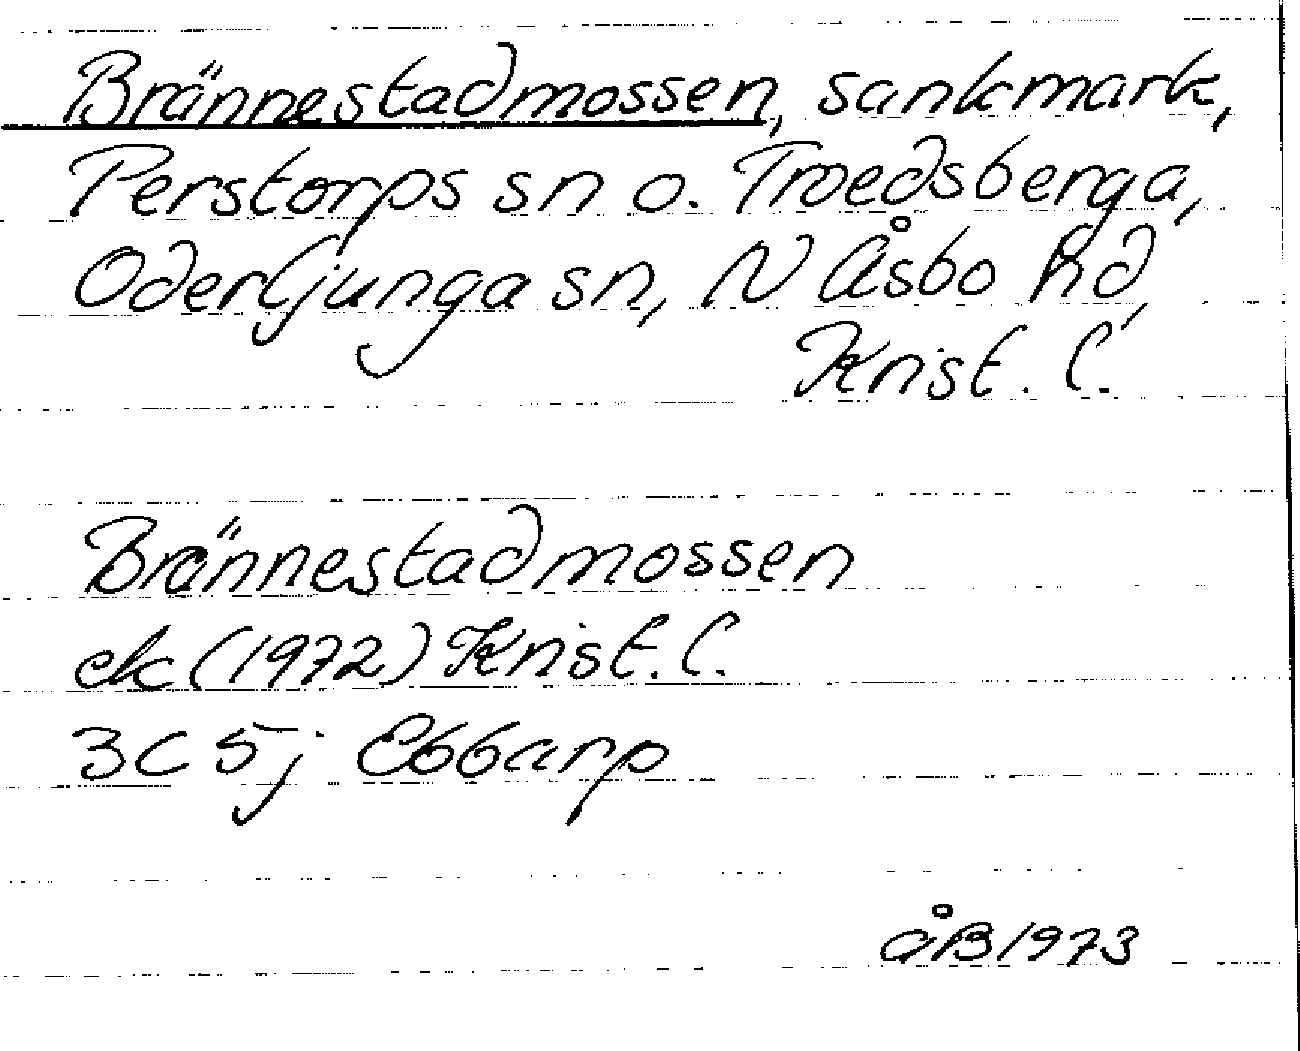 Brännestadmossen, sankmark,
Perstorps sn o. Troedsberga,
Oderljunga sn, N Åsbo hd,
Krist. l.
Brännestadmossen
ek (1972) Krist. l.
3C 5j Ebbarp
åB 1973